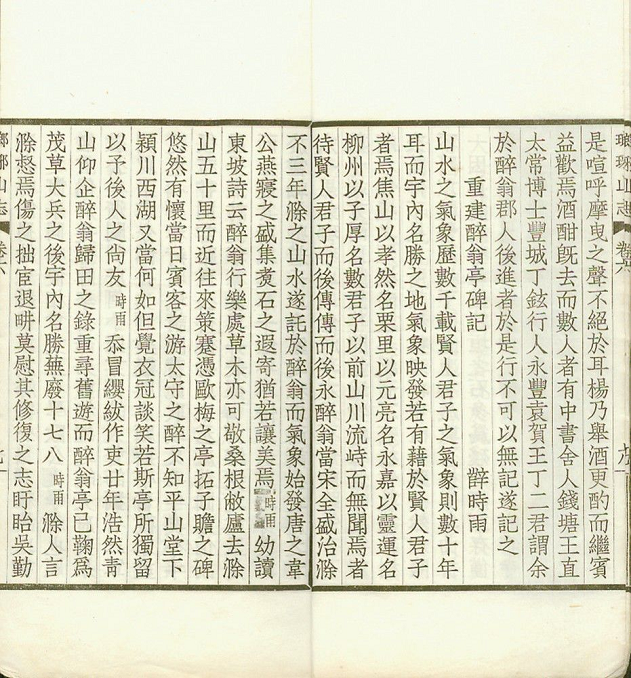 瑯琊山志 卷六
是喧呼摩曳之聲不絕於耳楊乃舉酒更酌而繼賓
益歡焉酒酣旣去而數人者有中書舍人錢塘王直
太常博士豐城丁鉉行人永豐袁賀王丁二君謂余
於醉翁郡人後進者於是行不可以無記遂記之
重建醉翁亭碑記 薛時雨
山水之氣象歷數千載賢人君子之氣象則數十年
耳而宇內名勝之地氣象映發若有藉於賢人君子
者焉焦山以孝然名栗里以元亮名永嘉以靈運名
柳州以子厚名數君子以前山川流峙而無聞焉者
待賢人君子而後傳傳而後永醉翁當宋全盛治滁
不三年滁之山水遂託於醉翁而氣象始發唐之韋
公燕寢之盛集煑石之遐寄猶若讓美焉時雨幼讀
東坡詩云醉翁行樂處草木亦可敬桑根敝廬去滁
山五十里而近往來策蹇憑歐梅之亭拓子瞻之碑
悠然有懷當日賓客之游太守之醉不知平山堂下
潁川西湖又當何如但覺衣冠談笑若斯亭所獨留
以予後人之尙友時雨忝冒纓紱作吏廿年浩然靑
山仰企醉翁歸田之錄重尋舊遊而醉翁亭已鞠爲
茂草大兵之後宇內名勝蕪廢十七八時雨滁人言
滁愸焉傷之拙宦退畊莫慰其修復之志盱眙吳勤
瑯琊山志 卷六